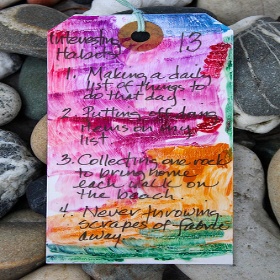 Interesting 13
Habits
1. Making a daily
list of things to
do that day.
2. Putting off doing
items on this
list
3. Collecting one rock
to bring home
each walk on
the beach.
4. Never throwing
scrapes of fabric
away.